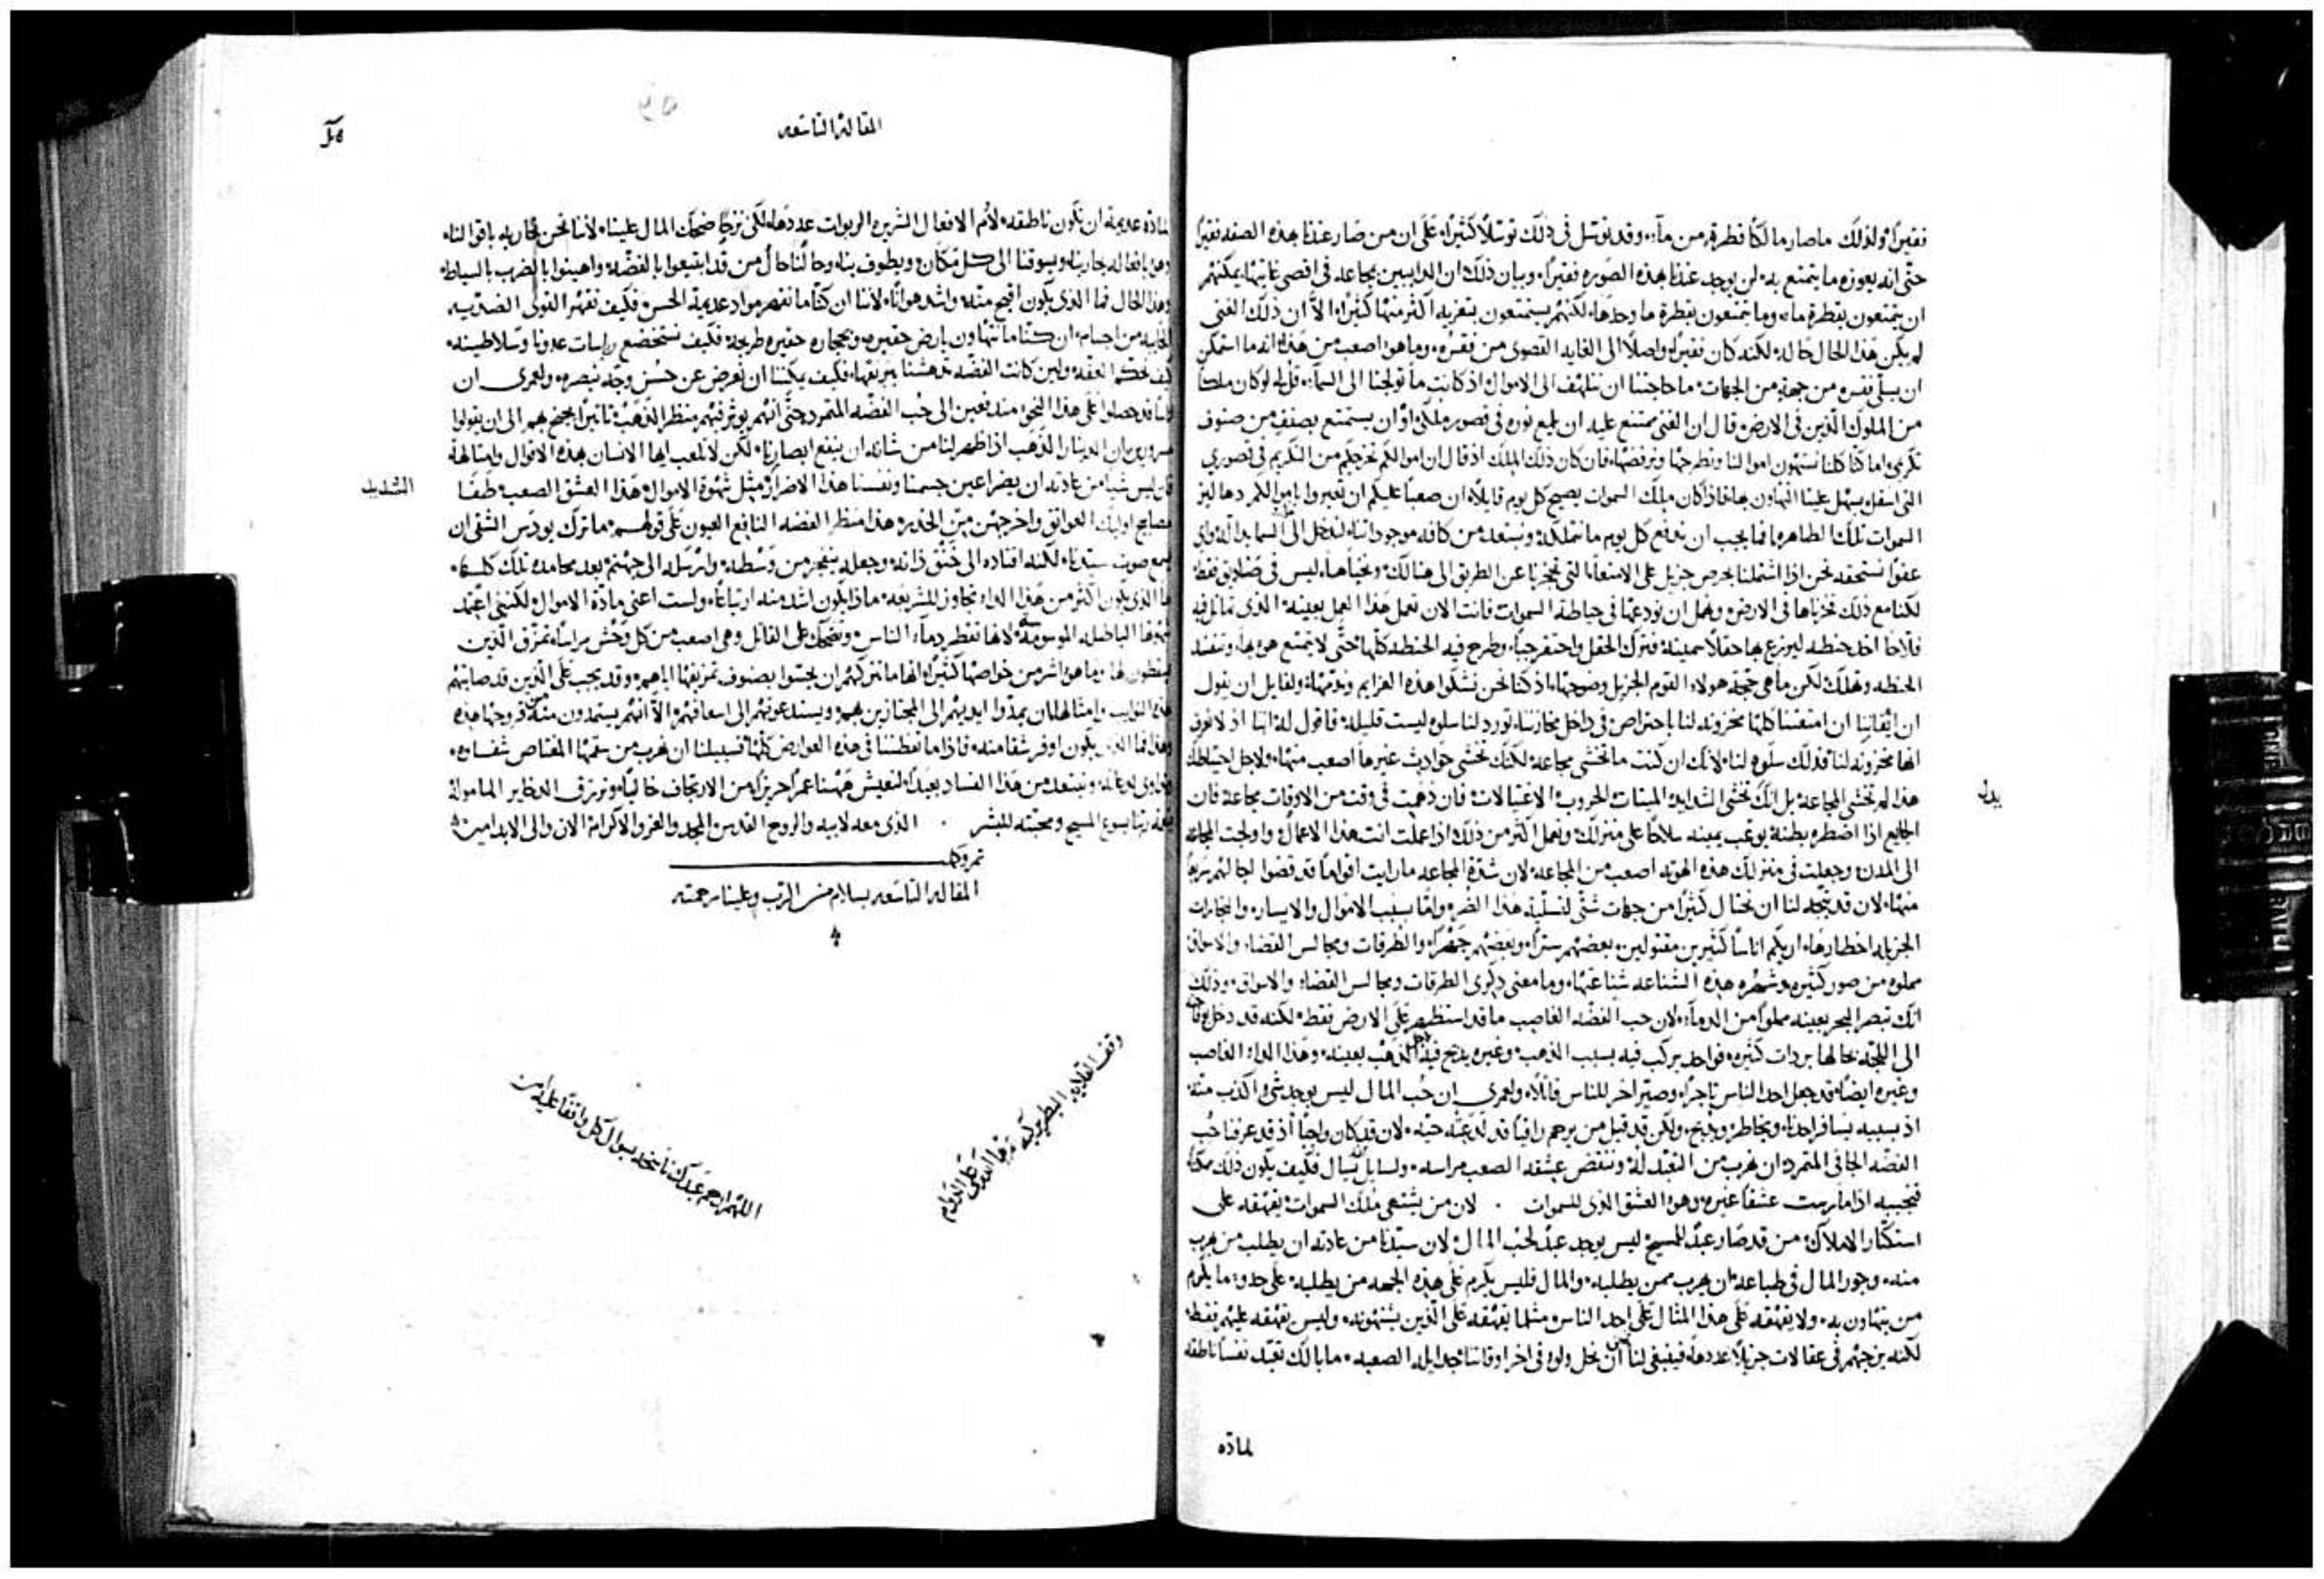 فقيرًا ولذلك ما صار مالكًا قطرة من مآء وقد توسل في ذلك توسلًا كثيرًا على ان من صار عندنا بهذه الصفه فقيرًا
حتى انه يعوزه ما يتمتع به لن يوجد عندنا بهذه الصوره فقيرًا وبيان ذلك ان الدايبين بمجاعه في اقصى غايتها يمكنهم
ان يتمتعون بقطرة ماء وما يتمتعون بقطرة ما وحدها لكنهم يستمتعون بتعزيه اكثر منها كثيرًا الا ان ذلك الغني
لم يكن هذا الحال حاله لكنه كان فقيرًا واصلًا الى الغايه القصوى من فقره وما هو اصعب من هذا انه ما استمكن
ان يسلي فقره من جهة من الجهات ما حاجتنا ان نتلهف الى الاموال اذ كانت ما تولجنا الى السمآء قل له لو كان ملكا
من الملوك الذين في الارض قال ان الغني يمتنع عليه ان يلمع نوره في قصور ملكي او ان يستمتع بصنف من صنوف
تكرمي اما كنا كلنا نستهون اموالنا ونطرحها ونرفضها فان كان ذلك الملك اذ قال ان اموالكم تخرجكم من التكريم في قصوري
التي اسفل يسهل علينا التهاون بها فاذا كان ملك السموات يصيح كل يوم قايلًا ان صعبًا عليكم ان تعبروا بها
السموات تلك الطاهره افما يجب ان ندفع كل يوم ما نتملكه ونبتعد من كافة موجوداتنا لندخل الى السما بدالة واي
عفوًا نستحقه نحن اذا اشتملنا بحرص جزيل على الامتعة التي تحجزنا عن الطريق الى هنالك ونخبأها ليس في صناديق فقط
لكنا مع ذلك نخزنها في الارض ونهمل ان نودعها في حياطة السموات فانت الان تعمل هذا العمل بعينه الذي تماثل فيه
فلاحًا اخذ حنطه ليزرع بها حقلًا سمينا فترك الحقل واحتفر جبًا وطرح فيه الحنطه كلها حتى لا يتمتع هو بها وتفسد
الحنطه وتهلك لكن ما هي حجة هولاء القوم الجزيل وضوحها اذ كنا نحن نشكوا هذه العزايم ونذمها ولقايل ان يقول
ان ايقاننا ان امتعتنا كلها مخزونه لنا باحتراص في داخل مخازننا تورد لنا سلوه ليست قليله فاقول له انها اذ لا نعرف
انها مخزونه لنا فذلك سلوه لنا لانك ان كنت ما تخشى مجاعه لكنك تخشى حوادث غيرها اصعب منها ولاجل احتياطك
هذا لم تخشى المجاعه بل انك تخشى الشدايد الميتات الحروب الاغتيالات فان ذهبت في وقت من الاوقات مجاعة فان
بدل
الجايع اذا اضطره بطنه يوعب يمينه سلاحًا على منزلك وتعمل اكثر من ذلك اذا عملت انت هذا الاعمال واولجت المجاعه
الى المدن وجعلت في منزلك هذه الهوته اصعب من المجاعه لان شدة المجاعه ما رايت اقوامًا قد قضوا اجالهم سريعًا
منها لان قد يتجه لنا ان نحتال كثيرًا من جهات شتى لتسلية هذا الضر واما بسبب الاموال والايسار والتجارات
الجزيله اخطارها اريكم اناسًا كثيرين مقتولين بعضهم سترًا وبعضهم جهرًا والطرقات ومجالس القضاء والاسواق
مملوه من صور كثيره وشهره هذه الشناعه شناعتها وما معنى ذكري الطرقات ومجالس القضاء والاسواق وذلك
انك تبصر البحر بعينه مملوًا من الدمآء لان حب الفضه الغاصب ما قد استظهر على الارض فقط لكنه قد دخل
الى اللجة بحالها بردات كثيره فواحد يركب فيه بسبب الذهب وغيره يذبح فيه لاجل الذهب بعينه وهذا الداء الغاصب
وغيره ايضًا قد جعل احد الناس تاجرًا وصير اخر للناس قاتلًا ولعمري ان حب المال ليس يوجد شي اكذب منه
اذ بسببه يسافر احدنا ويخاطر ويذبح ولكن قد قيل من يرحم راقيًا قد لدغته حيته لان قد كان واجبًا اذ قد عرفنا حب
الفضه الجافي المتمرد ان نهرب من التعبد له وننقض عشقه الصعب مراسه ولسايل يسال فكيف يكون ذلك ممكنا
فنجيبه اذا مارست عشقًا غيره وهو العشق الذي للسموات . لان من يشتهي ملك السموات يقهقه على
استكثار الاملاك من قد صار عبدًا للمسيح ليس يوجد عبدًا لحب المال لان سيدنا من عادته ان يطلب من يهرب
منه وجور المال في طباعه ان يهرب ممن يطلبه والمال فليس يكرم على هذه الجهه من يطلبه على حدو ما يكرم
من يتهاون به ولا يقهقه على هذا المثال على احد الناس مثلما يقهقه على الذين يشتهونه وليس يقهقه عليهم فقط
لكنه يزجهم في عقالات جزيلًا عددها فينبغي لنا ان نحل ولو في اخر اوقاتنا جدايله الصعبه ما بالك تعبد نفسًا ناطقه
لمادّه
المقالة التاسعه
لمادّه عديمة ان تكون ناطقه لام الافعال الشريره الربوات عددها لكن نزجا ضحك المال علينا لاننا نحن نحاربه باقوالنا
وهو بافعاله يحاربنا ويسوقنا الى كل مكان ويطوف بنا وحالنا حال من قد ابتيعوا بالفضة واهينوا بالضرب بالسياط
وهذا الحال فما الذي يكون اقبح منه واشد هوانًا لاننا ان كنا ما نقهر مواد عديمة الحس فكيف نقهر القوى الضديه
الخايبه من اجسام ان كنا ما نتهاون بارض حقيره وبحجاره حقيره طريحة فكيف نستخضع رياسات عدونا وسلاطينه
كيف نحكم العفة ولين كانت الفضة تدهشنا ببريقها فكيف يمكننا ان نعرض عن حسن وجه نبصره ولعمري ان
اناسًا قد حصلوا على هذا النحو مندفعين الى حب الفضه المتمرد حتى انهم يوثر فيهم منظر الذهب تاثيرًا يجنح بهم الى ان يقولوا
مسرورين ان الدينار الذهب اذا ظهر لنا من شانه ان ينفع ابصارنا لكن لا تلعب ايها الانسان بهذه الاقوال وامثالها
فان ليس شيا من عادته ان يضر اعين جسمنا ونفسنا هذا الاضرار مثل شهوة الاموال هذا العشق الصعب طفا
الشديد
مصابيح اوليك العواتق واخرجهن من الخدر هذا منظر الفضه النافع العيون على قولهم ما ترك يودس الشقي ان
يسمع صوت سيدنا لكنه اقتاده الى خنق ذاته وجعله ينفجر من وسطه وارسله الى جهنم بعد محامده تلك كلها
ما الذي يكون اكثر من هذا الداء تجاوز للشريعه ماذا يكون اشد منه ارتياعًا ولست اعني مادة الاموال لكنني اعتمد
شهوتها الباطله الموسوسه لانها تقطر دماء الناس وتضحك على القاتل وهي اصعب من كل وحش مراسًا تمزق الذين
يسقطون لها وما هو اشر من خواصها كثيرًا انها ما تتركهم ان يحسوا بصنوف تمزيقها اياهم وقد يجب على الذين قد صابتهم
هذه النوايب وامثالها ان يمدوا ايديهم الى المجتازين بهم ويستدعونهم الى اسعافهم الا انهم يستمدون منه قروحها هذه
وهذا فما الذي يكون اوفر شقا منه فاذا ما تفطننا في هذه العوارض كلها فسبيلنا ان نهرب من سقمها المقتاص شفاوه
ونداوي لدغاته ونبتعد من هذا الفساد بعيدًا لنعيش ههنا عمرًا حريزًا من الارتجاف خاليًا ونرزق الدخاير المامولة
بنعمة ربنا يسوع المسيح ومحبته للبشر . الذي معه لابيه والروح القدس المجد والعز والاكرام الان والى الابد امين
تم وكمل
المقاله التاسعه بسلام من الرب وعلينا رحمته
وقف القلايه البطريركيه
اللهم ارحم عبدك ناسخه بسوال كل واقفًا عليه امين